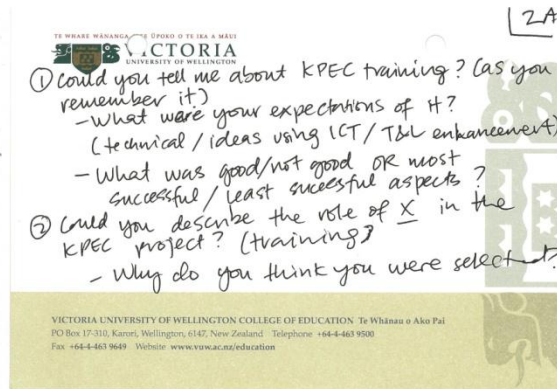 2A
TE WHARE WĀNANGA O TE ŪPOKO O TE IKA A MĀUI
VICTORIA
UNIVERSITY OF WELLINGTON
① Could you tell me about KPEC training? (as you
remember it)
- What were your expectations of it?
(technical / ideas using ICT / T&L enhancement)
- What was good/not good OR most
successful / least successful aspects?
② Could you describe the role of X in the
KPEC project? (training)
- Why do you think you were selected?
VICTORIA UNIVERSITY OF WELLINGTON COLLEGE OF EDUCATION Te Whānau o Ako Pai
PO Box 17-310, Karori, Wellington, 6147, New Zealand Telephone +64-4-463 9500
Fax +64-4-463 9649 Website www.vuw.ac.nz/education